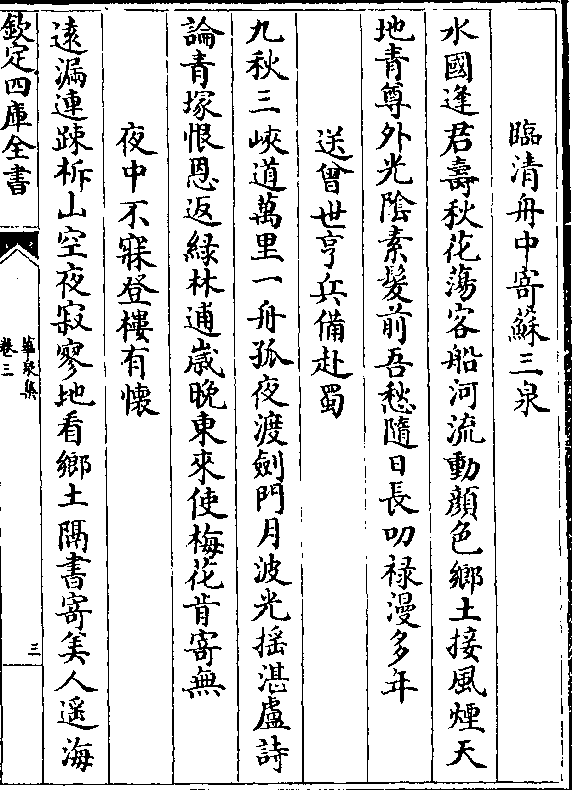 臨清舟中寄蘇三泉
水國逢君壽秋花蕩客船河流動顔色鄉土接風煙天
地青尊外光陰素髮前吾愁隨日長叨禄漫多年
送曾世亨兵備赴蜀
九秋三峽道萬里一舟孤夜渡劍門月波光摇湛盧詩
論青塚恨恩返緑林逋歳晩東來使梅花肯寄無
夜中不寐登樓有懷
遠漏連踈柝山空夜寂寥地看鄉土隔書寄美人遥海
欽定四庫全書
華泉集
卷三
三